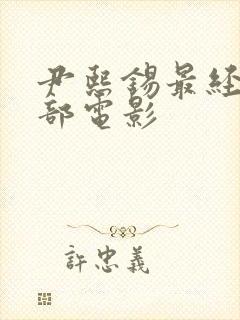 尹熙錫最經
部電影
許忠義